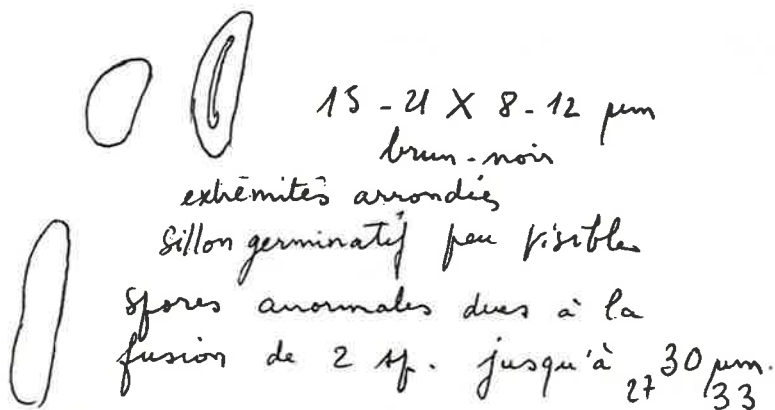 15 - 21 X 8 - 12 µm
brun-noir
extrémités arrondies
Sillon germinatif peu visible
Spores anormales dues à la
fusion de 2 sp. jusqu'à 27 30 µm.
33